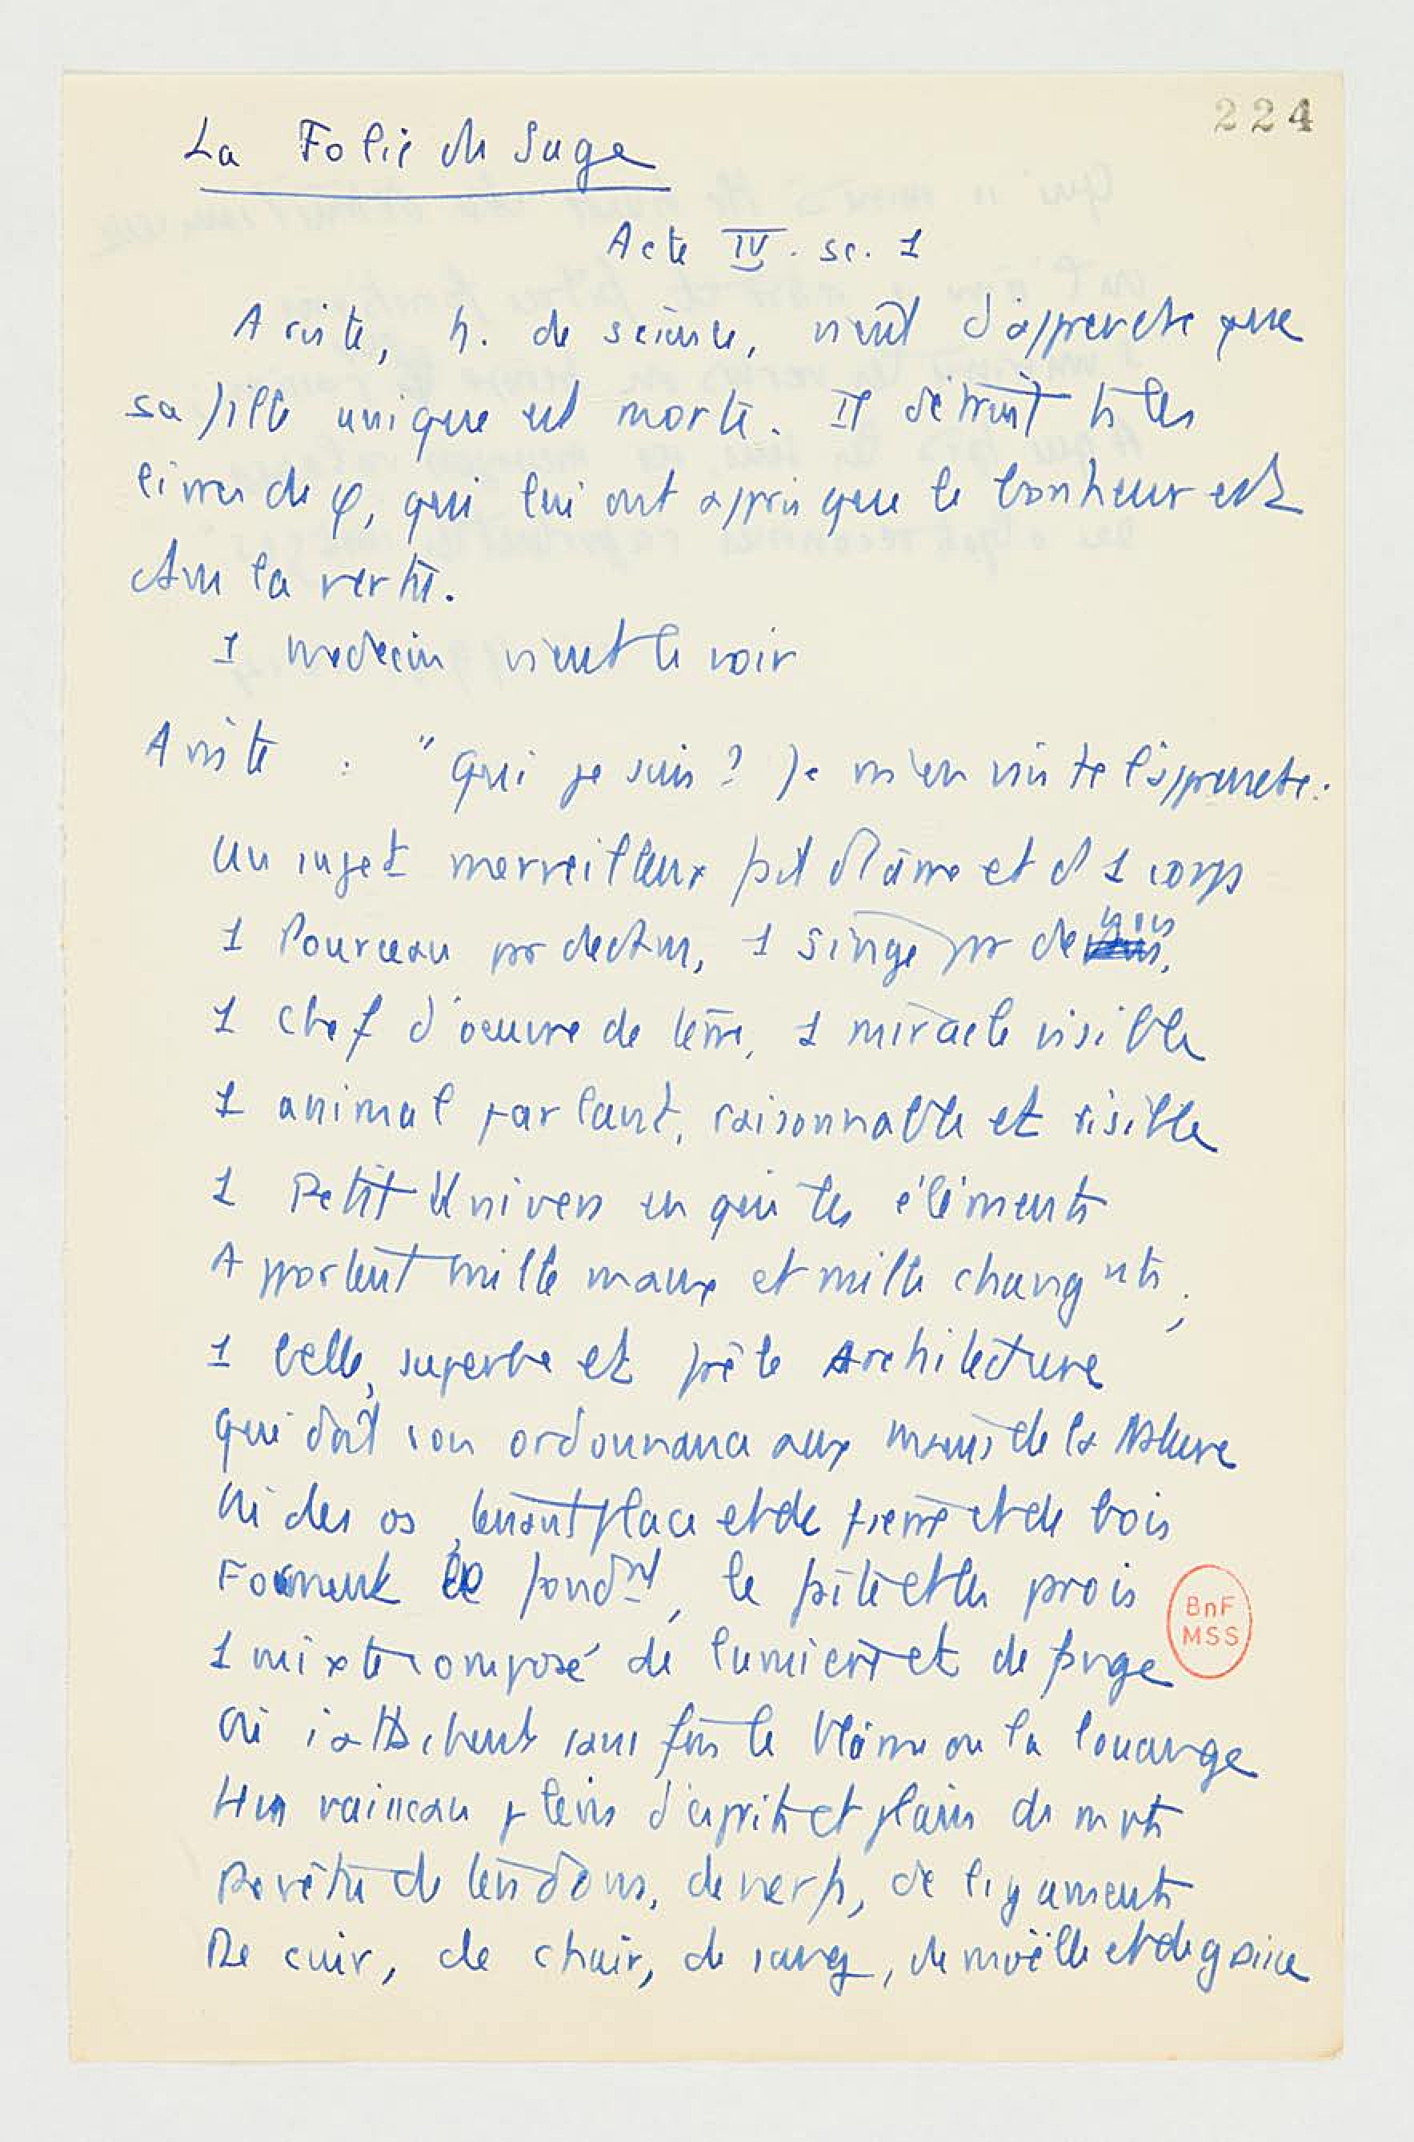 224
La Folie du Sage
Acte IV. sc. 1
Ariste, h. de science, vient d'apprendre que
sa fille unique est morte. Il détruit ts les
livres de φ, qui lui ont appris que le bonheur est
dans la vertu.
1 médecin vient le voir
Ariste : "Qui je suis? Je m'en vais te l'apprendre:
Un sujet merveilleux fait d'âme et d'1 corps
1 Pourceau pr dedans, 1 singe pr dehors,
1 chef d'oeuvre de terre, 1 miracle visible
1 animal parlant, raisonnable et risible
1 Petit Univers en qui les éléments
Apportent mille maux et mille changnts;
1 belle, superbe et frêle Architecture
qui doit son ordonnance aux mains de la Nature
Où des os, tenant place et de pierre et de bois
Forment le fondnt, le faîte et les parois
1 mixte composé de lumière et de fange
Où s'attachent sans fin le blâme ou la louange
Un vaisseau plein d'esprits et plein de mvts
Revêtu de tendons, de nerfs, de ligaments
De cuir, de chair, de sang, de moëlle et de graisse
BnF
MSS